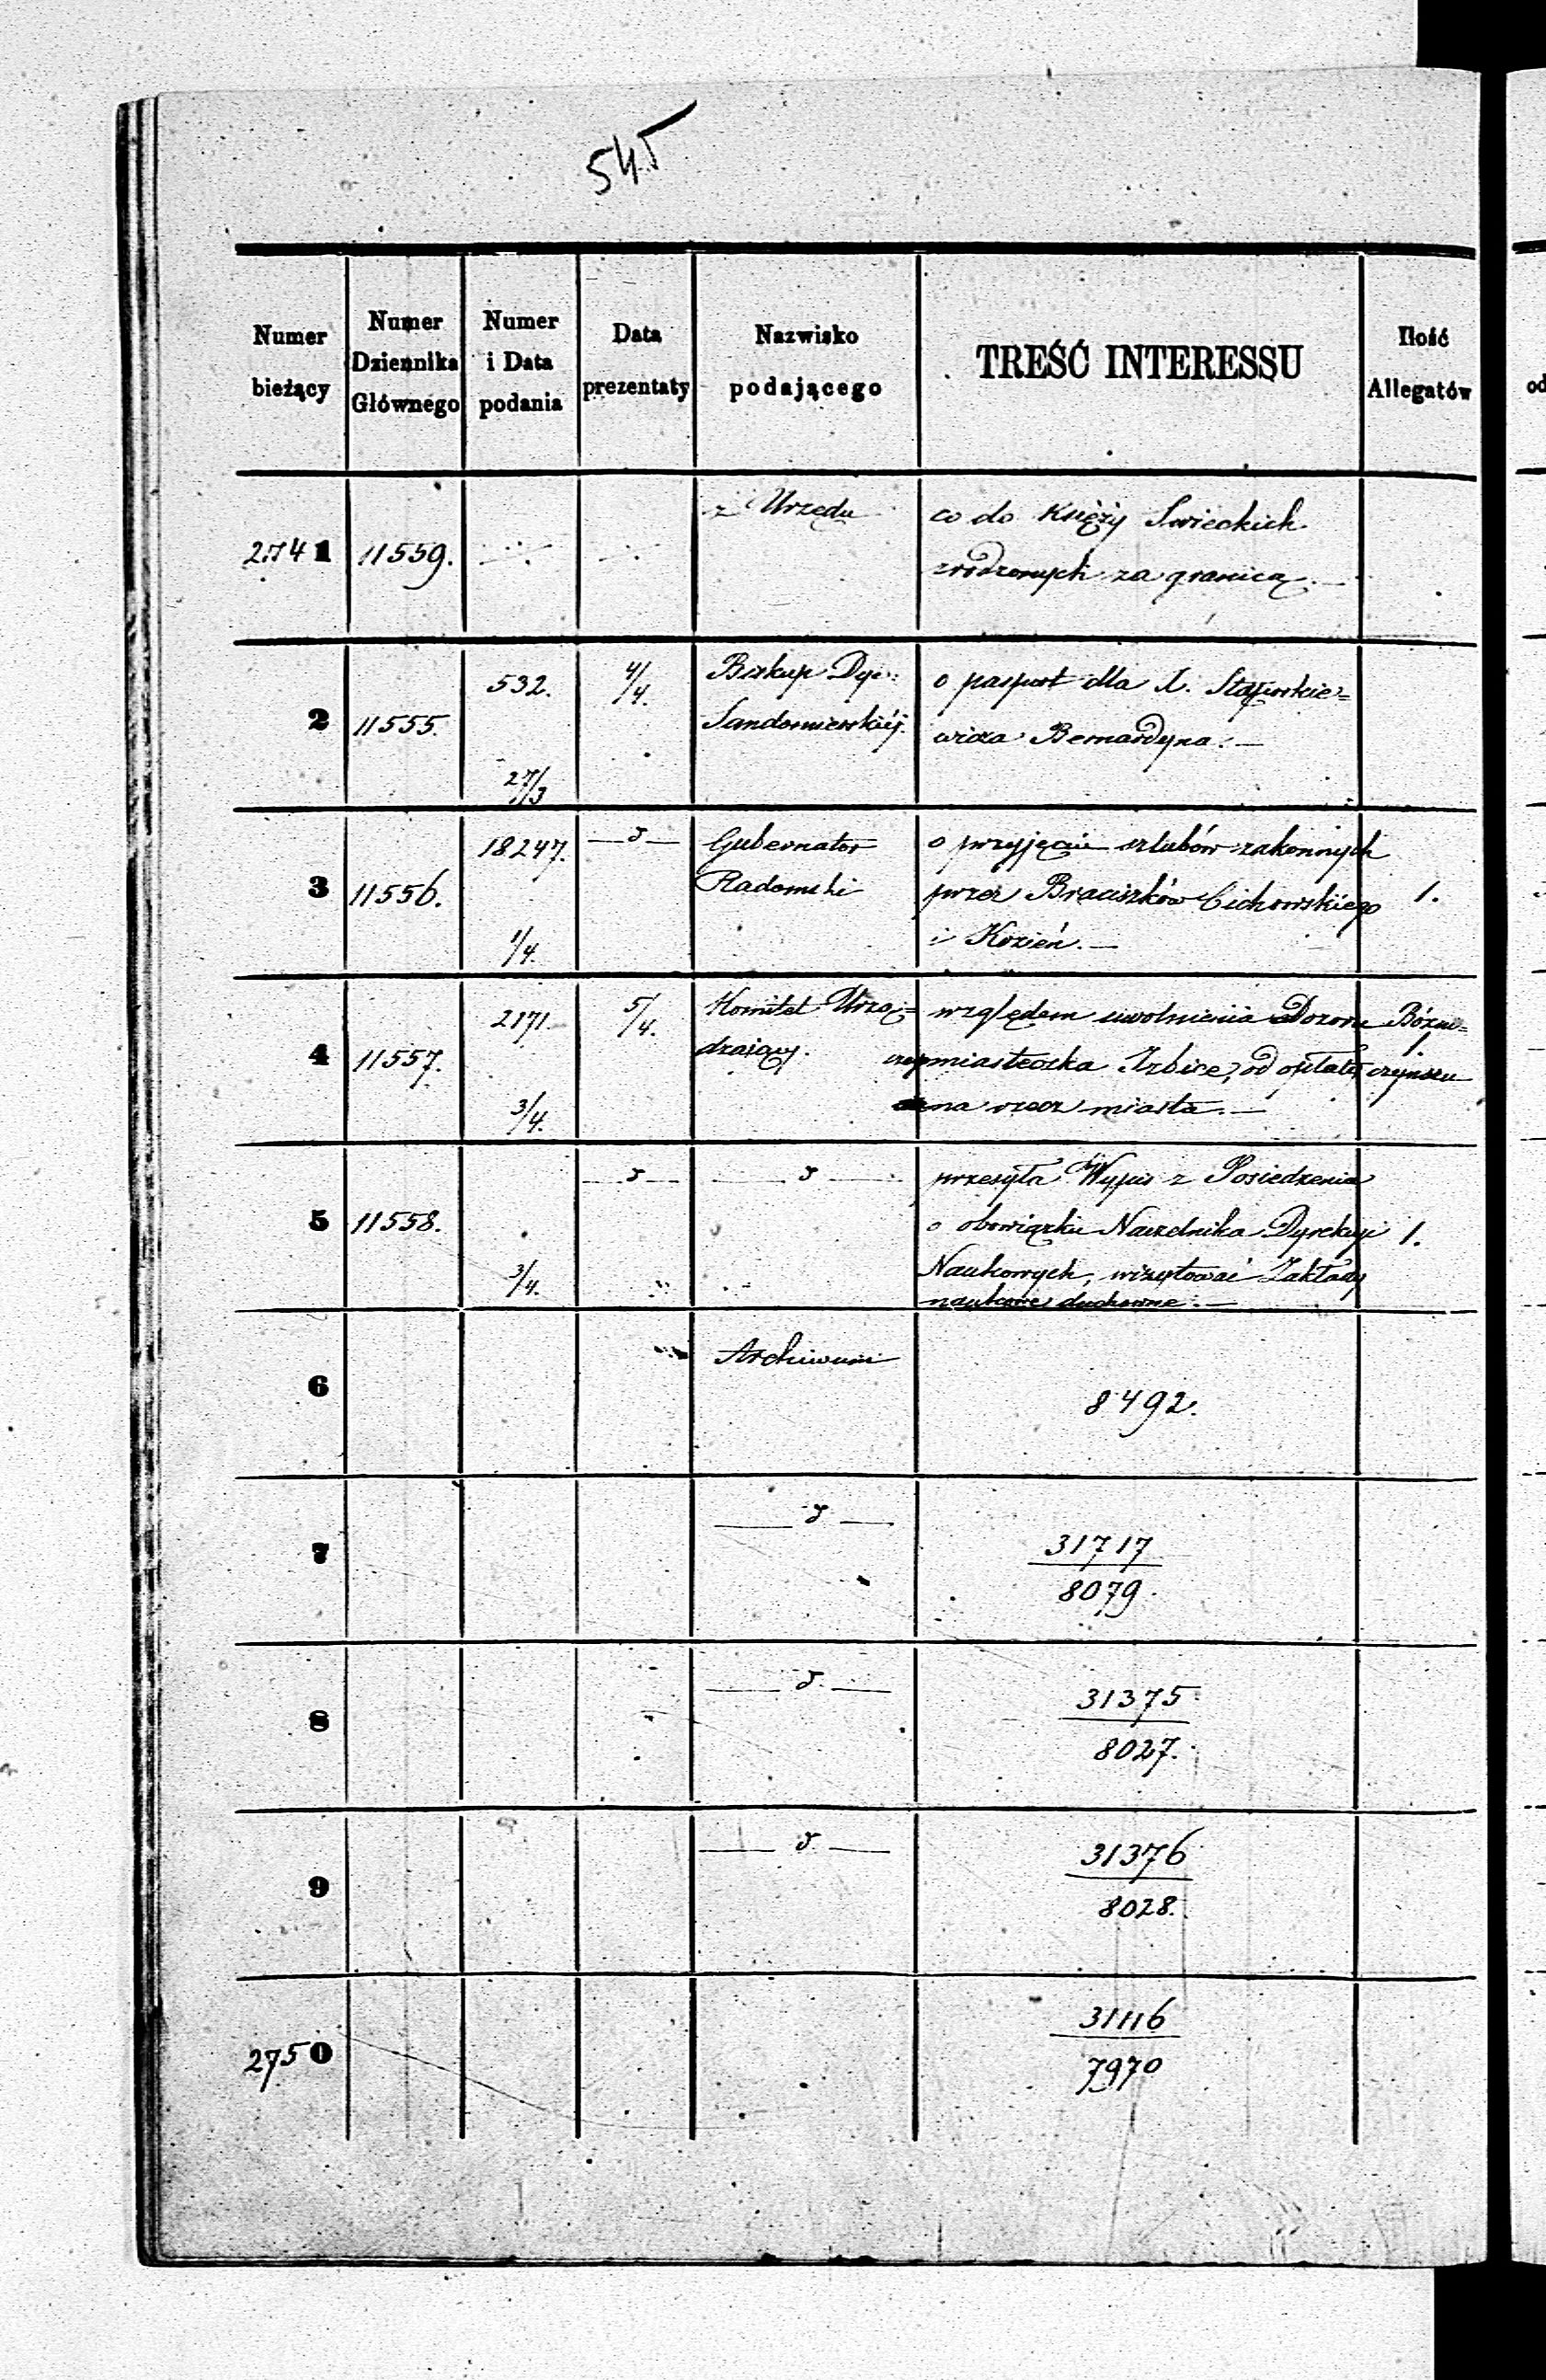 545
Numer bieżący
Numer Dziennika Głównego
Numer i Data podania
Data prezentaty
Nazwisko podającego
TREŚĆ INTERESSU
Ilość Allegatów
2741 11559. z Urzędu co do Księży Swieckich
zrodzonych za granicą. —
2 11555. 532. 27/3 4/4. Biskup Dye: o pasport dla X.
Sandomierskiéj. wicza Bernardyna. —
3 11556. 18247. 1/4. — d — Gubernator o przyjęcie szlubów zakonnych
Radomski przez Braciszków Cichowskiego 1.
i Kozień. —
4 11557. 2171. 3/4. 5/4. Komitet Urzą= względem uwolnienia Dozoru Bóżni=
dzaiący. miasteczka Izbice, od opłaty czynszu 1.
na rzecz miasta. —
5 11558. 3/4. — d — — d — przesyła Wypis z Posiedzenia
o obowiązku Naczelnika Dyrekcyi 1.
Naukowych, wizytować Zakłady
naukowe duchowne. —
6 Archiwum 8492.
7 — d — 31717
8079.
8 — d — 31375
8027.
9 — d — 31376
8028.
2750 31116
7970